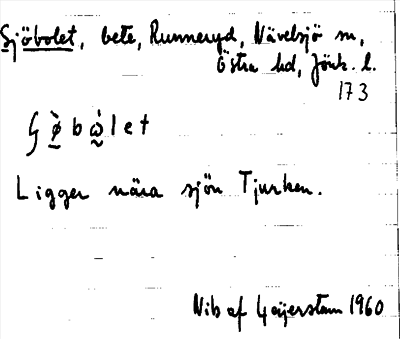 Sjöbolet, bete, Runneryd, Nävelsjö sn,
Östra hd, Jönk. l.
173
ʃø̀bὼlet
Ligger nära sjön Tjurken.
Nils af Geijerstam 1960